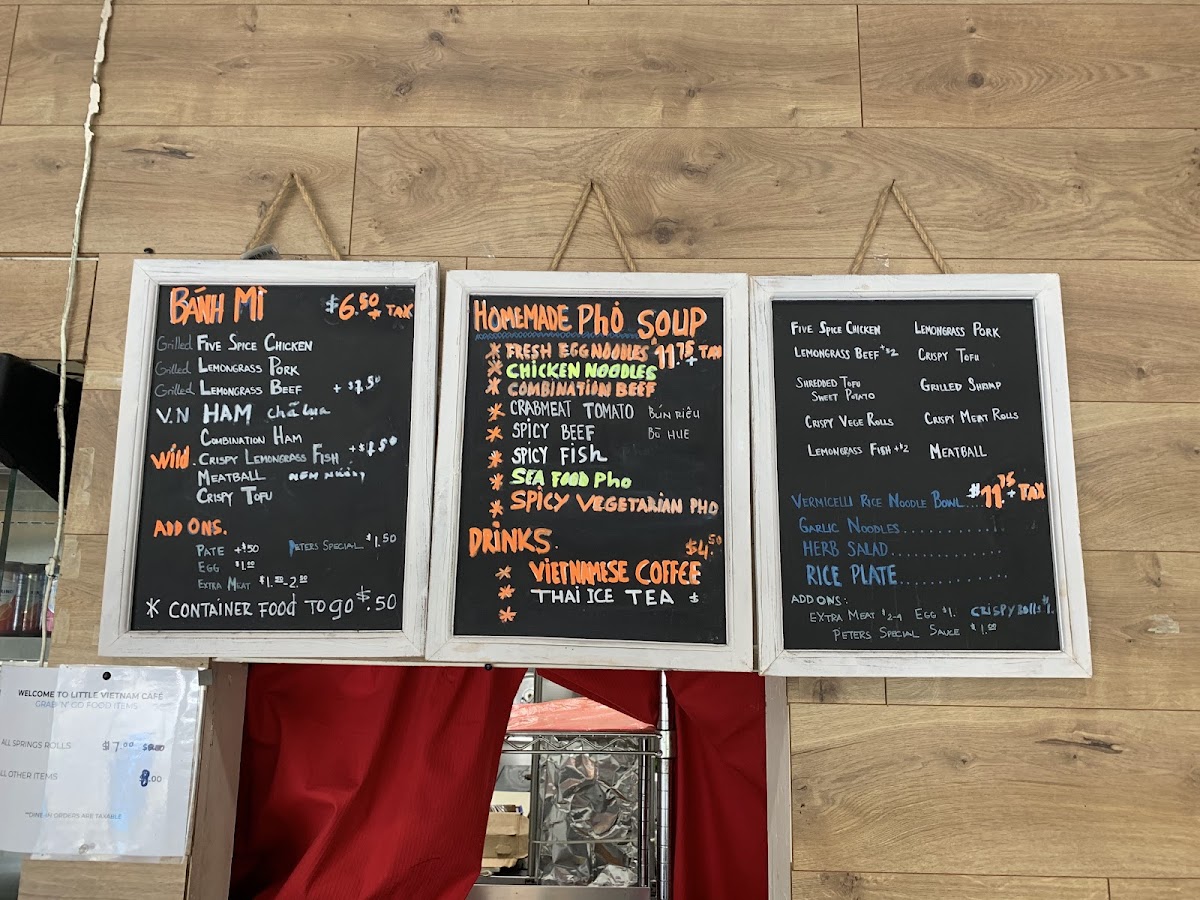 BÁNH MÌ $6.50 + TAX
Grilled FIVE SPICE CHICKEN
Grilled LEMONGRASS PORK
Grilled LEMONGRASS BEEF + $1.50
V.N HAM chả lụa
COMBINATION HAM
Wild CRISPY LEMONGRASS FISH + $1.50
MEATBALL NEM NƯỚNG
CRISPY TOFU
ADD ONS.
PATE + $.50 PETERS SPECIAL $1.50
EGG $1.00
EXTRA MEAT $1.50-2.50
* CONTAINER FOOD TO GO $.50
HOMEMADE PHỞ SOUP
* FRESH EGG NOODLES $11.75 + TAX
* CHICKEN NOODLES
* COMBINATION BEEF
* CRABMEAT TOMATO BÚN RIÊU
* SPICY BEEF BÒ HUE
* SPICY FISH
* SEA FOOD PHO
* SPICY VEGETARIAN PHO
DRINKS $4.50
* VIETNAMESE COFFEE
* THAI ICE TEA
*
FIVE SPICE CHICKEN LEMONGRASS PORK
LEMONGRASS BEEF +$2 CRISPY TOFU
SHREDDED TOFU GRILLED SHRIMP
SWEET POTATO
CRISPY VEGE ROLLS CRISPY MEAT ROLLS
LEMONGRASS FISH +$2 MEATBALL
VERMICELLI RICE NOODLE BOWL.... $11.75 + TAX
GARLIC NOODLES.............
HERB SALAD..............
RICE PLATE............
ADD ONS:
EXTRA MEAT $2-4 EGG $1. CRISPY ROLLS $1.
PETERS SPECIAL SAUCE $1.00
WELCOME TO LITTLE VIETNAM CAFÉ
GRAB 'N' GO FOOD ITEMS
ALL SPRINGS ROLLS $7.00
ALL OTHER ITEMS $8.00
**DINE IN ORDERS ARE TAXABLE